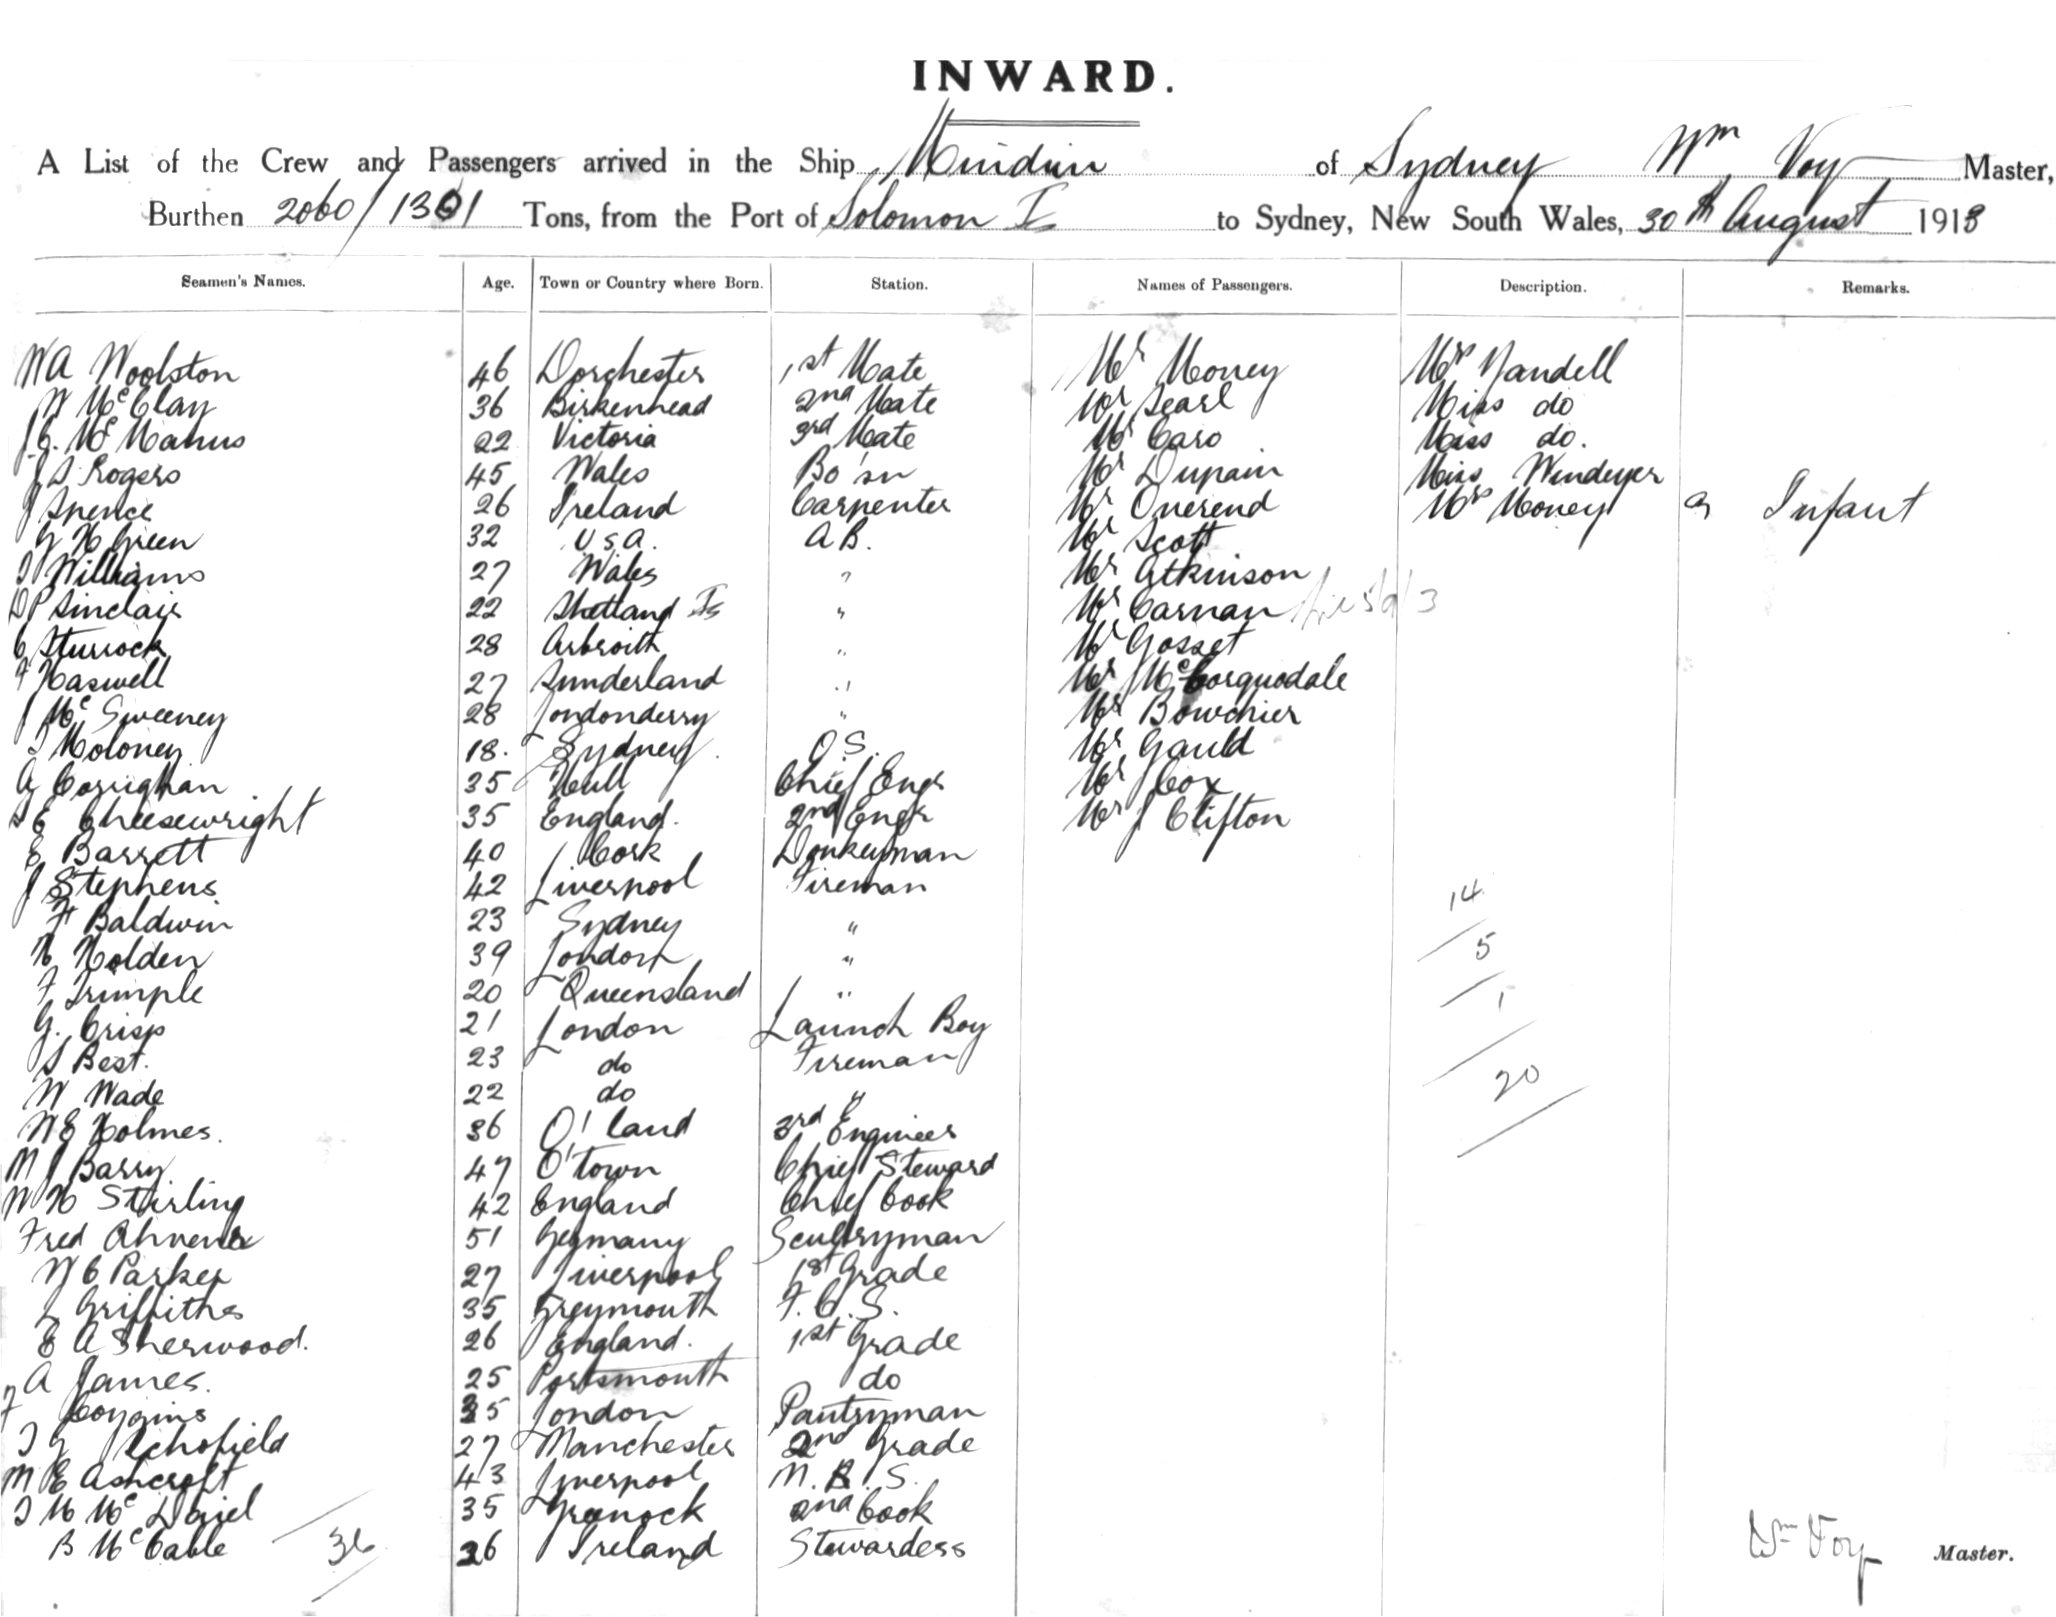 INWARD.
A List of the Crew and Passengers arrived in the Ship Mindini of Sydney Wm Voy Master,
Burthen 2060/1301 Tons, from the Port of Solomon Is to Sydney, New South Wales, 30th August 1913
Seamen's Names. Age. Town or Country where Born. Station. Names of Passengers. Description. Remarks.
WA Woolston 46 Dorchester 1st Mate Mr Money Mrs Nandell
W McClay 36 Birkenhead 2nd Mate Mr Searl Miss do
J.G. McManus 22 Victoria 3rd Mate Mr Caro Miss do.
J S Rogers 45 Wales Bo'sn Mr Dupain Miss Windeyer
J Spence 26 Ireland Carpenter Mr Overend Mrs Money & Infant
G H Green 32 U S A. A B. Mr Scott
Williams 27 Wales " Mr Atkinson
D P Sinclair 22 Shetland Is " Mr Carnan
C Sturrock 28 Arbroith " Mr Gosset
F Haswell 27 Sunderland " Mr McCorquodale
J McSweeney 28 Londonderry " Mr Bowchier
Moloney 18. Sydney. O S. Mr Gauld
A Corrighan 35 Hull Chief Engr Mr Cox
S E Cheesewright 35 England. 2nd Engr Mr J Clifton
E Barrett 40 Cork Donkeyman
J Stephens 42 Liverpool Fireman 14
F Baldwin 23 Sydney "
H Holden 39 London " 5
F Trimple 20 Queensland " 1
G. Crisp 21 London Launch Boy
S Best. 23 do Fireman
W Wade 22 do " 20
W E Holmes. 36 Q'land 3rd Engineer
M J Barry 47 Q'town Chief Steward
W H Stirling 42 England Chief Cook
Fred Ahrens 51 Germany Scullryman
W C Parker 27 Liverpool 1st Grade
L Griffiths 35 Greymouth F. C. S.
E A Sherwood. 26 England. 1st Grade
A James. 25 Portsmouth do
F Coggins 35 London Pantryman
T G Schofield 27 Manchester 2nd Grade
M E Ashcroft 43 Liverpool M. B. S.
35 Greenock 2nd Cook
B McCable 36 26 Ireland Stewardess
Wm Voy Master.